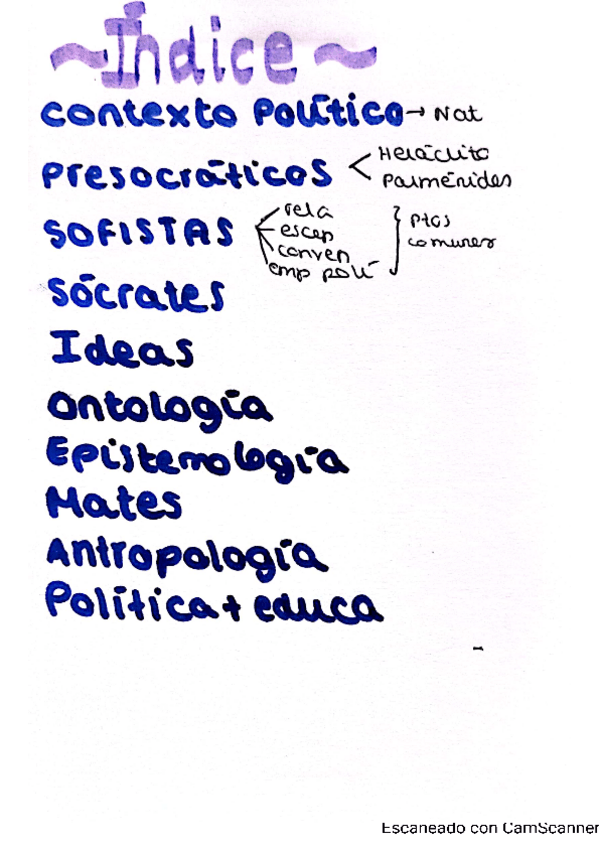 ~Índice~
contexto Político → Nat
Presocráticos < Heráclito
Parménides
SOFISTAS rela
escep
conven
emp polí
} ptos
comunes
Sócrates
Ideas
Ontología
Epistemología
Mates
Antropología
Política + educa
Escaneado con CamScanner